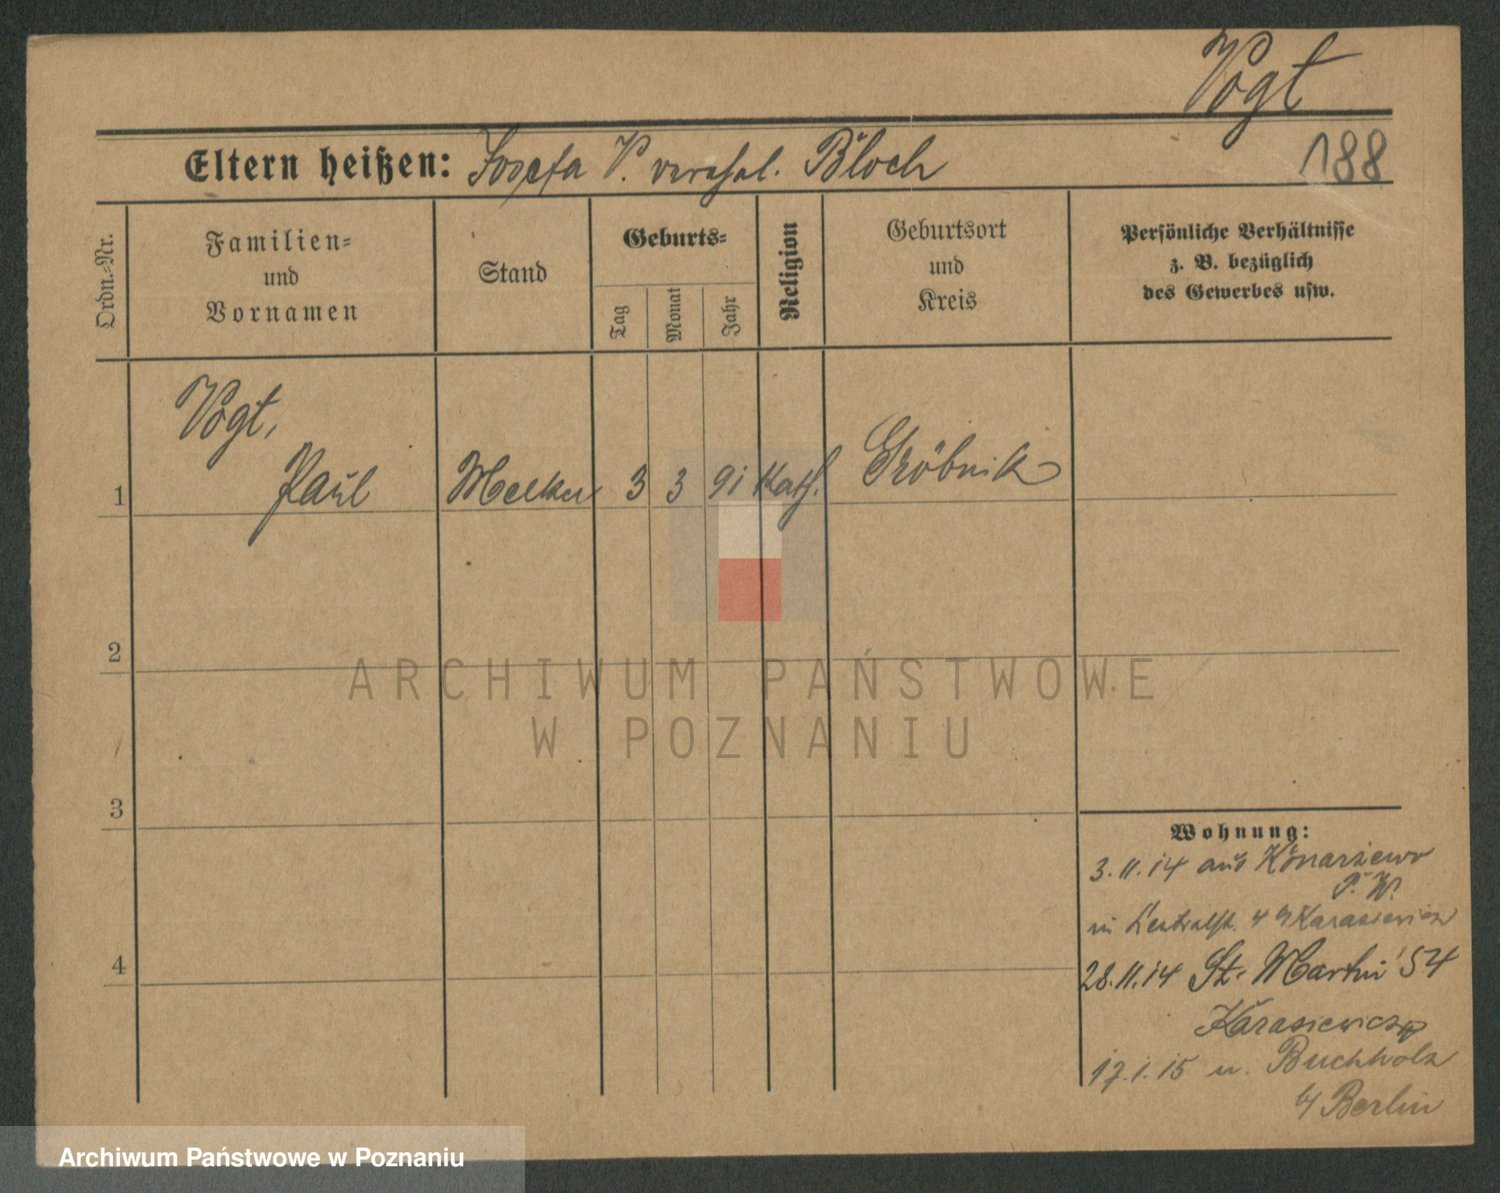 Vogt
188
Eltern heißen: Josefa V. verehel. Bloch
Ordn.=Nr.
Familien=
und
Vornamen
Stand
Geburts=
Tag
Monat
Jahr
Religion
Geburtsort
und
Kreis
Persönliche Verhältnisse
z. B. bezüglich
des Gewerbes usw.
1
Vogt,
Paul
3
3
91
kath.
Gröbnik
2
3
4
Wohnung:
3.11.14 aus Konarzewo
P. W.
in 4 b/ Karasiewicz
28.11.14 St. Martin 54
Karasiewicz
17.1.15 n. Buchholz
b/ Berlin
ARCHIWUM PAŃSTWOWE
W POZNANIU
Archiwum Państwowe w Poznaniu